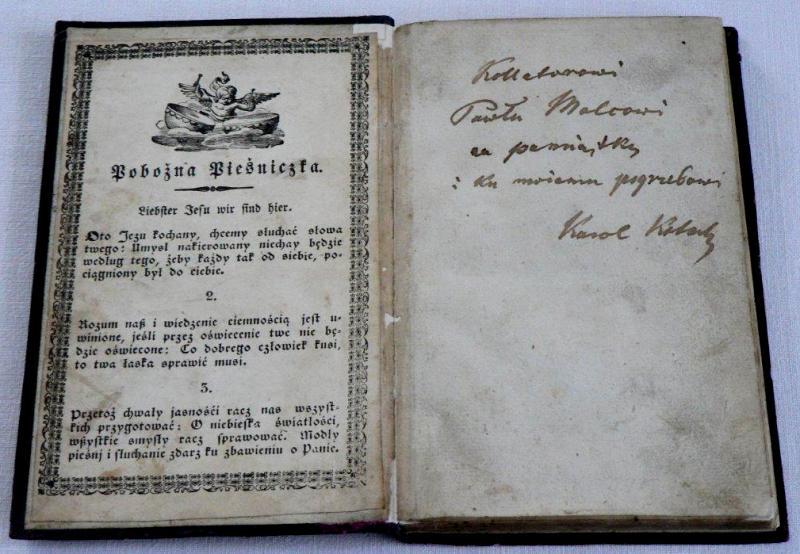 Pobożna Pieśniczka.
Liebster Jesu wir sind hier.
Oto Jezu kochany, chcemy słuchać słowa
twego: Umysł nakierowany niechay będzie
według tego, żeby każdy tak od siebie, po-
ciągniony był do ciebie.
2.
Rozum naß i wiedzenie ciemnością jest u-
winione, jeśli przez oświecenie twe nie bę-
dzie oświecone: Co dobrego człowiek kusi,
to twa łaska sprawić musi.
3.
Przetoż chwały jasnośći racz nas wszyst-
kich przygotować: O niebieska światłości,
wßystkie smysły racz sprawować. Modły
pieśnj i słuchanie zdarz ku zbawieniu o Panie.
Pawłu
za pamiątkę
i ku mojemu pogrzebowi
Karol